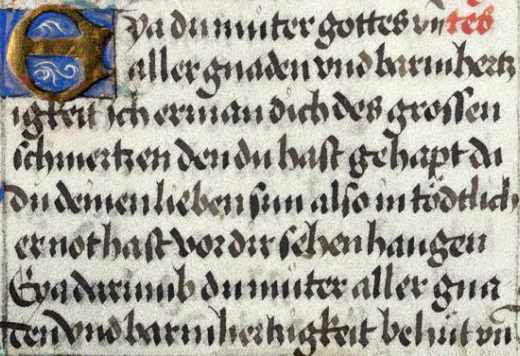 Eya du muter gottes vn̄ tes
aller gnaden vnd barmhertz
igkeit ich erman dich des grossen
schmertzen den du hast gehapt da
du deinen lieben sun also in tödtlich
er not hast vor dir sehen hangen
Eya darumb du muter aller gna
den vnd barmhertzigkeit behüt vn̄